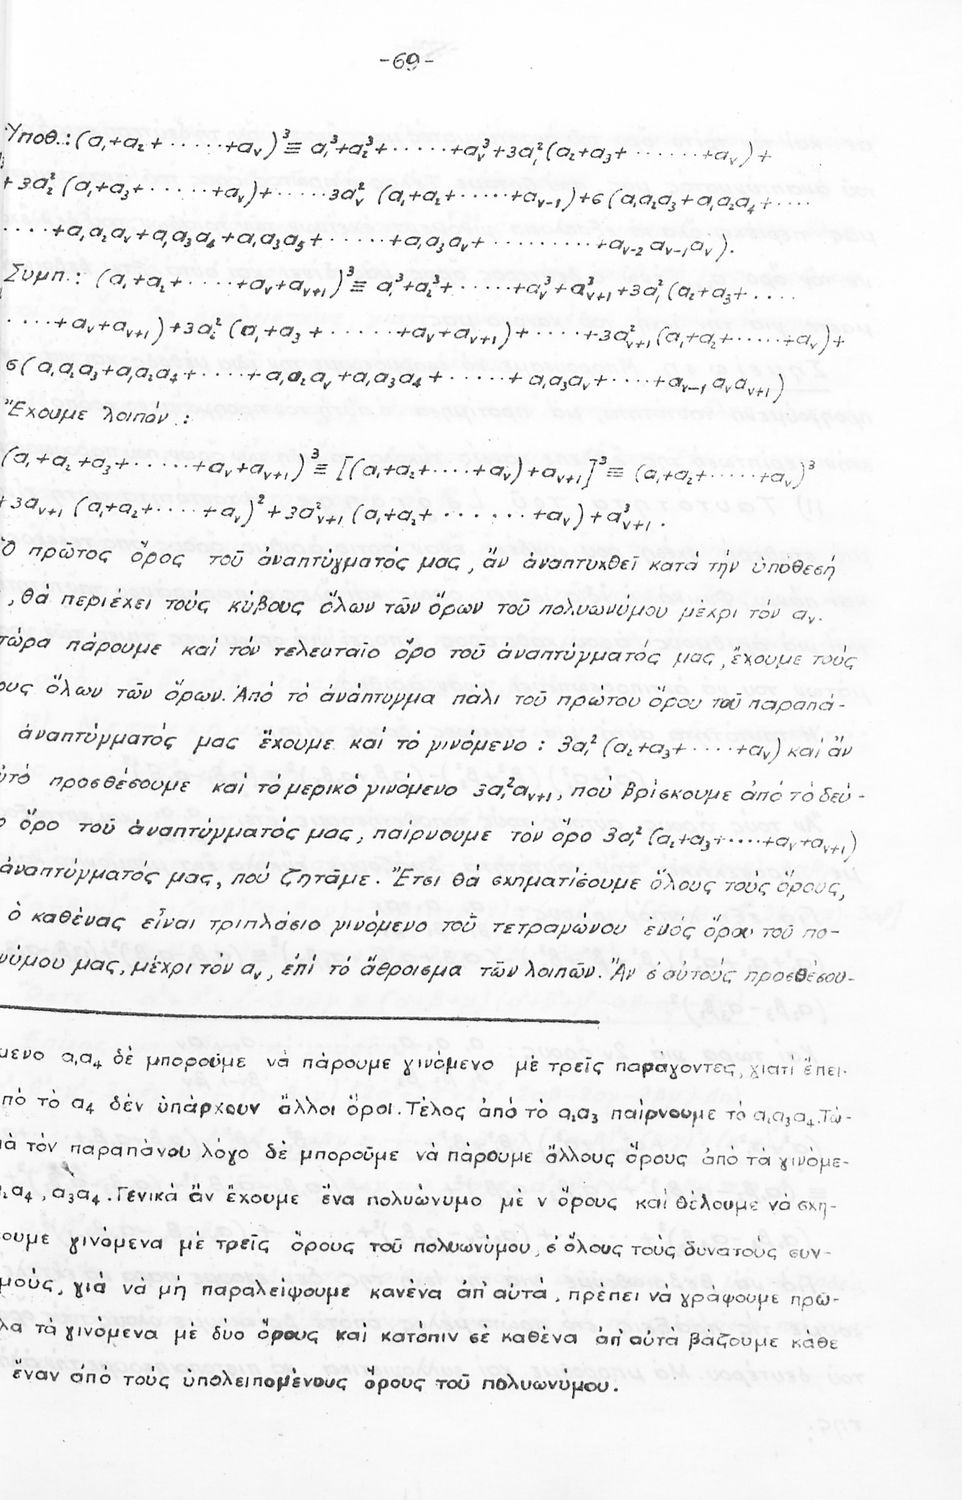 -69-
Ὑποθ.: (α₁+α₂+·····+αᵥ)³≡ α₁³+α₂³+·····+αᵥ³+3α₁²(α₂+α₃+······+αᵥ)+
+3α₂²(α₁+α₃+·····+αᵥ)+·····3αᵥ² (α₁+α₂+·····+αᵥ₋₁)+6(α₁α₂α₃+α₁α₂α₄+····
····+α₁α₂αᵥ+α₁α₃α₄+α₁α₃α₅+·····+α₁α₃αᵥ+·········+αᵥ₋₂ αᵥ₋₁αᵥ).
Συμπ.: (α₁+α₂+·····+αᵥ+αᵥ₊₁)³≡ α₁³+α₂³+·····+αᵥ³+α³ᵥ₊₁+3α₁²(α₂+α₃+····
····+αᵥ+αᵥ₊₁)+3α₂²(α₁+α₃+·····+αᵥ+αᵥ₊₁)+····+3α²ᵥ₊₁(α₁+α₂+·····+αᵥ)+
6(α₁α₂α₃+α₁α₂α₄+····+α₁α₂αᵥ+α₁α₃α₄+·····+α₁α₃αᵥ+····+αᵥ₋₁αᵥαᵥ₊₁)
Ἔχουμε λοιπόν:
(α₁+α₂+α₃+·····+αᵥ+αᵥ₊₁)³≡ [(α₁+α₂+····+αᵥ)+αᵥ₊₁]³≡ (α₁+α₂+·····+αᵥ)³
+3αᵥ₊₁ (α₁+α₂+····+αᵥ)²+3α²ᵥ₊₁(α₁+α₂+·······+αᵥ)+α³ᵥ₊₁.
Ὁ πρῶτος ὅρος τοῦ ἀναπτύγματός μας, ἄν ἀναπτυχθεῖ κατά τήν ὑπόθεσή
, θά περιέχει τούς κύβους ὅλων τῶν ὅρων τοῦ πολυωνύμου μέχρι τόν αᵥ.
τώρα πάρουμε καί τόν τελευταῖο ὅρο τοῦ ἀναπτύγματός μας, ἔχουμε τούς
ους ὅλων τῶν ὅρων. Ἀπό τό ἀνάπτυγμα πάλι τοῦ πρώτου ὅρου τοῦ παραπά-
ἀναπτύγματός μας ἔχουμε καί τό γινόμενο: 3α₁²(α₂+α₃+····+αᵥ) καί ἄν
ὐτό προσθέσουμε καί τό μερικό γινόμενο 3α₁²αᵥ₊₁, πού βρίσκουμε ἀπό τό δεύ-
ο ὅρο τοῦ ἀναπτύγματός μας, παίρνουμε τόν ὅρο 3α₁²(α₂+α₃+····+αᵥ+αᵥ₊₁)
ἀναπτύγματός μας, πού ζητᾶμε. Ἔτσι θά σχηματίσουμε ὅλους τούς ὅρους,
ὁ καθένας εἶναι τριπλάσιο γινόμενο τοῦ τετραγώνου ἑνός ὅρου τοῦ πο-
νύμου μας, μέχρι τόν αᵥ, ἐπί τό ἄθροισμα τῶν λοιπῶν. Ἄν σ'αὐτούς προσθέσου-
μενο α₁α₄ δέ μποροῦμε νά πάρουμε γινόμενο μέ τρεῖς παράγοντες, γιατί ἔπει-
πό τό α₄ δέν ὑπάρχουν ἄλλοι ὅροι. Τέλος ἀπό τό α₂α₃ παίρνουμε τό α₂α₃α₄. Τώ-
ιά τόν παραπάνου λόγο δέ μποροῦμε νά πάρουμε ἄλλους ὅρους ἀπό τά γινόμε-
α₂α₄, α₃α₄. Γενικά ἄν ἔχουμε ἕνα πολυώνυμο μέ ν ὅρους καί θέλουμε νά σχη-
ουμε γινόμενα μέ τρεῖς ὅρους τοῦ πολυωνύμου, σ'ὅλους τούς δυνατούς συν-
μούς, γιά νά μή παραλείψουμε κανένα ἀπ'αὐτά, πρέπει νά γράψουμε πρῶ-
λα τά γινόμενα μέ δύο ὅρους καί κατόπιν σέ καθένα ἀπ'αὐτά βάζουμε κάθε
ἕναν ἀπό τούς ὑπολειπομένους ὅρους τοῦ πολυωνύμου.